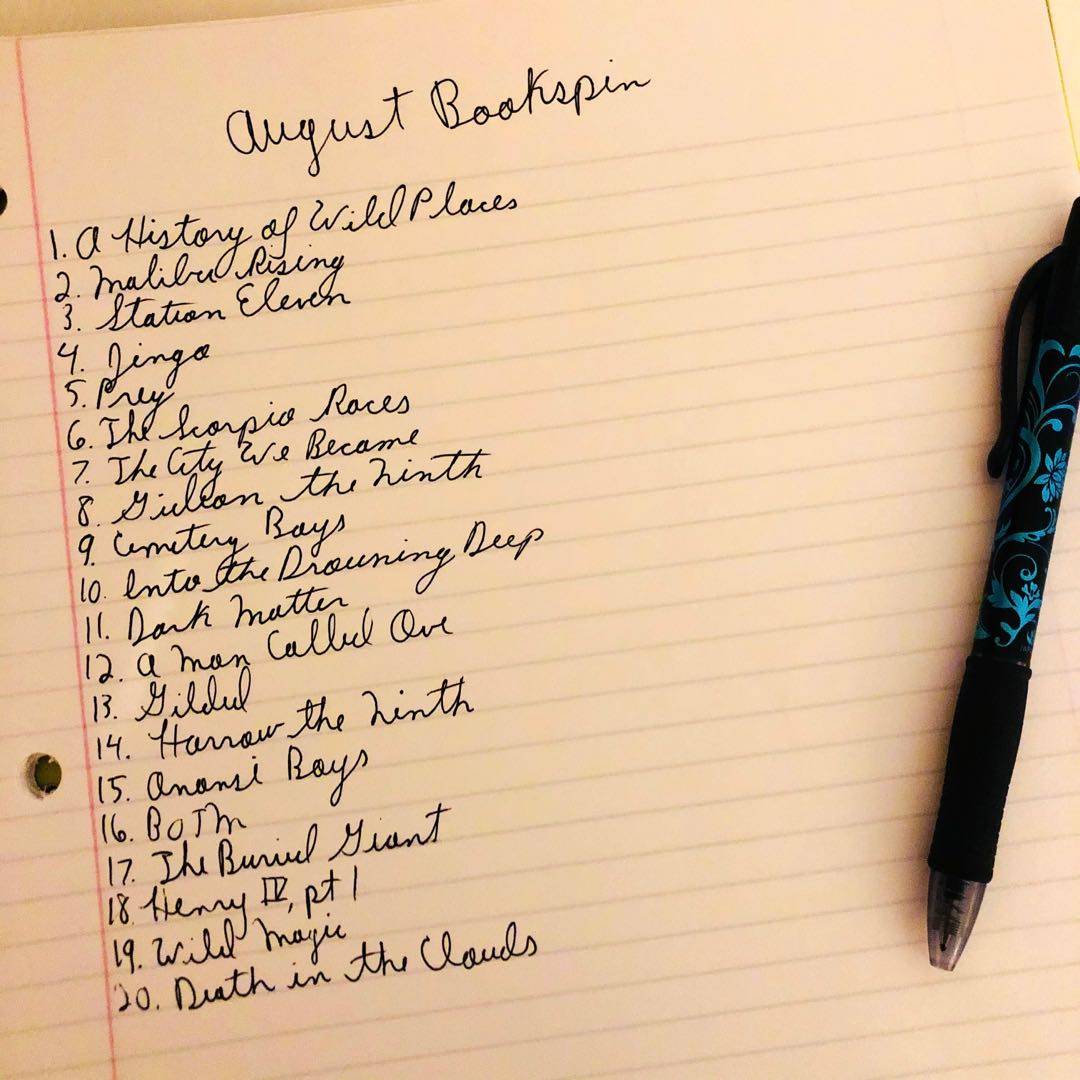 August Bookspin
1. A History of Wild Places
2. Malibu Rising
3. Station Eleven
4. Jingo
5. Prey
6. The Scorpio Races
7. The City We Became
8. Gideon the Ninth
9. Cemetery Boys
10. Into the Drowning Deep
11. Dark Matter
12. A Man Called Ove
13. Gilded
14. Harrow the Ninth
15. Anansi Boys
16. BOTM
17. The Buried Giant
18. Henry IV, pt 1
19. Wild Magic
20. Death in the Clouds